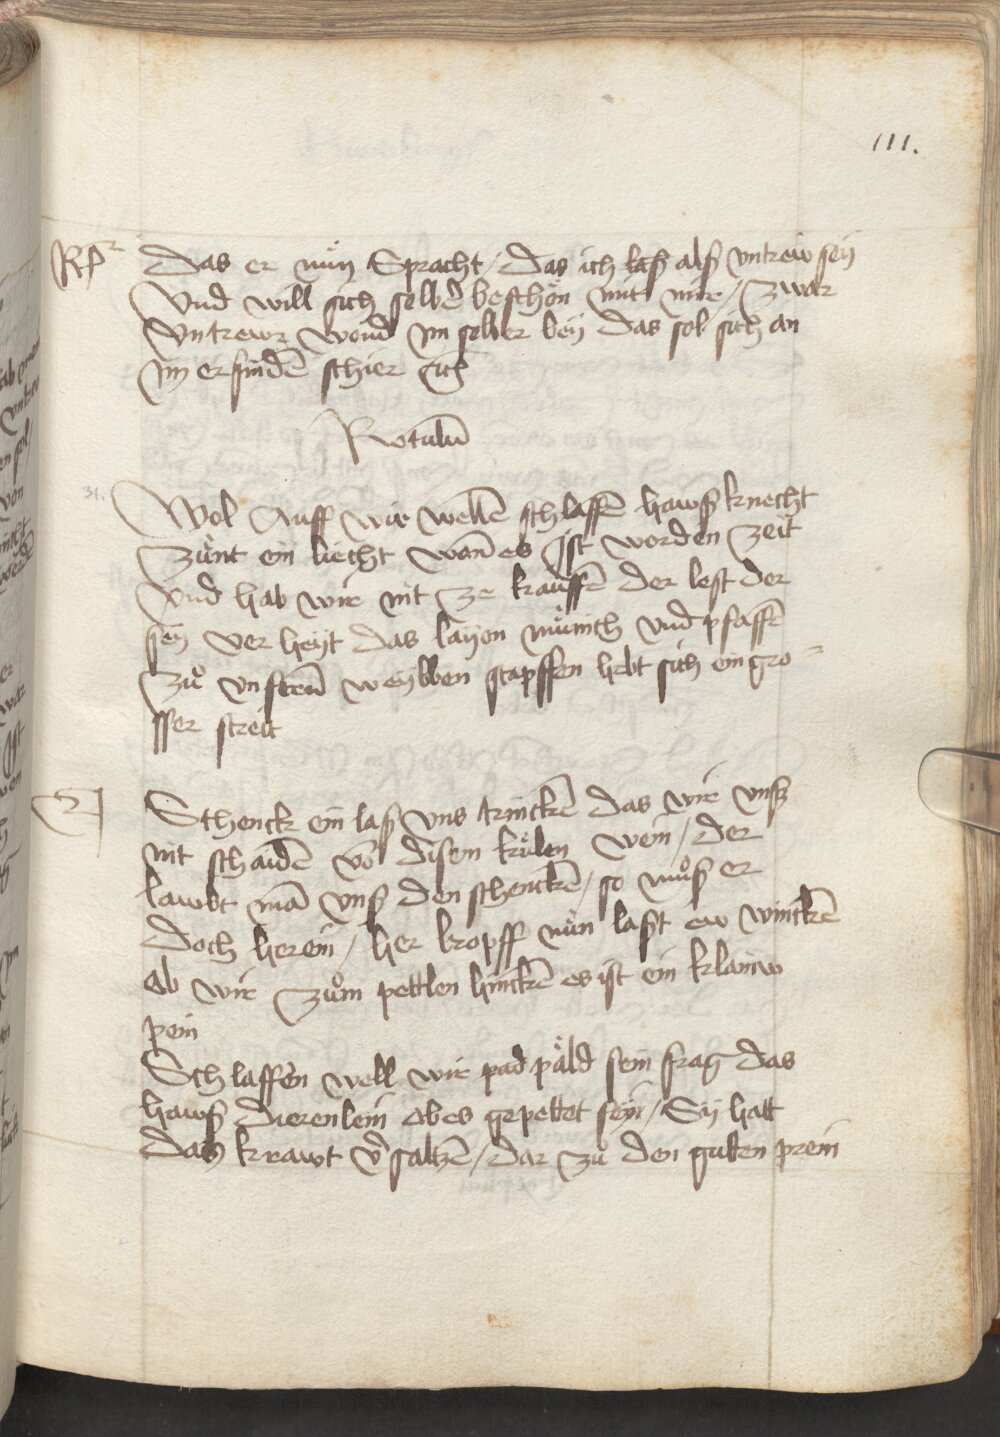 111.
Rp̄ Das er nuͤn Spracht / das ich laß alß vntrew seÿ
Vnd will sich selbd beschoͤn mit mir / zwar
Vntrewr wond im selber beÿ das sol sich an
im erfinden̄ schier Etc̄
Rotulū
31. Wol Auff wir wellē schlaffē hawßknecht
zuͤnt ein liecht wan̄ es Ist worden zeit
Vnd hab wir nit ze krauffē der lest der
seÿ ver heyt das laÿen muͤnich vnd pfaffē
zuͦ vnserū weÿbben stapffen hebt sich ein gro=
sser streit
2 Schenck ein laß vns trinckē das wir vnß
nit schaidē vō disem kuͤlen wein / der
lawbt mā vnß den schenckē / so muͦß er
doch herein / her kropff nuͤn laßt ew winckē
ob wir zuͦm pettlen hinckē es ist ein klainw
pein
Schlaffen well wir pad paͤld sein frag das
hawß dierenlein ob es gepettet seÿ / Sÿ hatt
das krawt v̄saltzē / dar zuͦ den guten prein